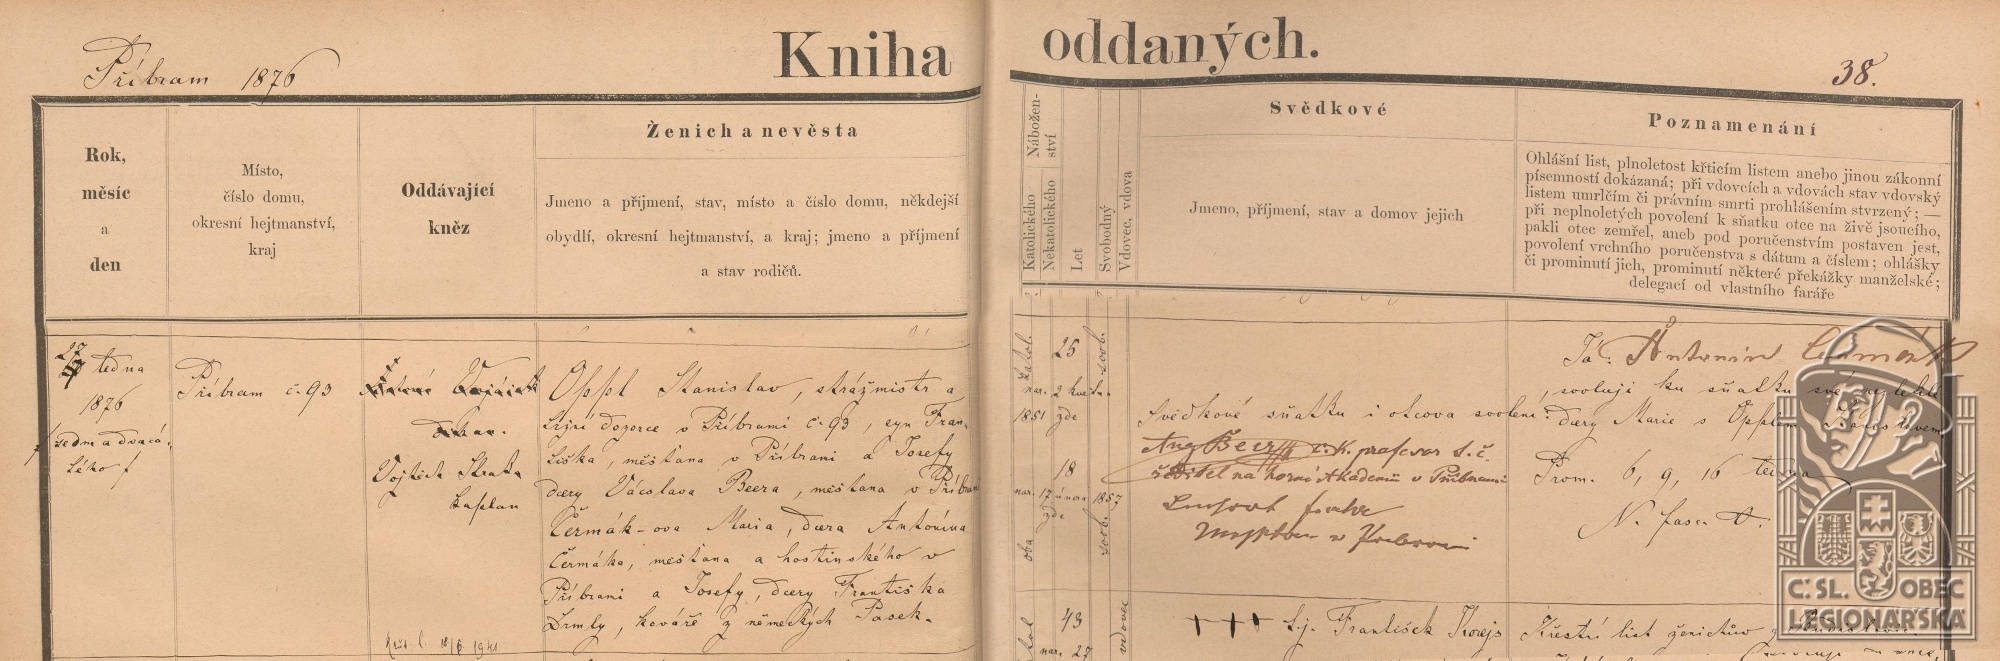 Kniha oddaných.
Příbram 1876
38.
Rok,
měsíc
a
den
Místo,
číslo domu,
okresní hejtmanství,
kraj
Oddávající
kněz
Ženich a nevěsta
Jmeno a příjmení, stav, místo a číslo domu, někdejší
obydlí, okresní hejtmanství, a kraj; jmeno a příjmení
a stav rodičů.
Nábožen-
ství
Katolického
Nekatolického
Let
Svobodný
Vdovec, vdova
Svědkové
Jmeno, příjmení, stav a domov jejich
Poznamenání
Ohlášní list, plnoletost křticím listem anebo jinou zákonní
písemností dokázaná; při vdovcích a vdovách stav vdovský
listem umrlčím či právním smrti prohlášením stvrzený; —
při neplnoletých povolení k sňatku otce na živě jsoucího,
pakli otec zemřel, aneb pod poručenstvím postaven jest,
povolení vrchního poručenstva s dátum a číslem; ohlášky
či prominutí jich, prominutí některé překážky manželské;
delegací od vlastního faráře
27
ledna
1876
sedmadvacá-
tého
Příbram č. 93
děkan.
Vojtěch Straka
kaplan
Oppl Stanislav, strážmistr a
dozorce v Příbrami č. 93, syn Fran-
tiška, měšťana v Příbrami a Josefy
dcery Václava Beera, měšťana v Příbrami
Čermák-ova Maria, dcera Antonína
Čermáka, měšťana a hostinského v
Příbrami a Josefy, dcery Františka
Drmly, kováře z německých Pasek.
18/6 1941
katol.
25
svob.
nar. 2 květn.
1851 zde
18
nar. 17 února 1857
zde
oba
svob.
Svědkové sňatku i otcova svolení:
Aug Beer c. k. professor t. č.
ředitel na horní Akademii v Příbrami
v Příbrami
Já: Antonín Čermák
, svoluji ku sňatku své nezletilé
dcery Marie s Opplem
Prom. 6, 9, 16 ledna
43
nar. 27
vdovec
+++ František
Křestní list ženichův
Č.SL. OBEC
LEGIONÁŘSKÁ